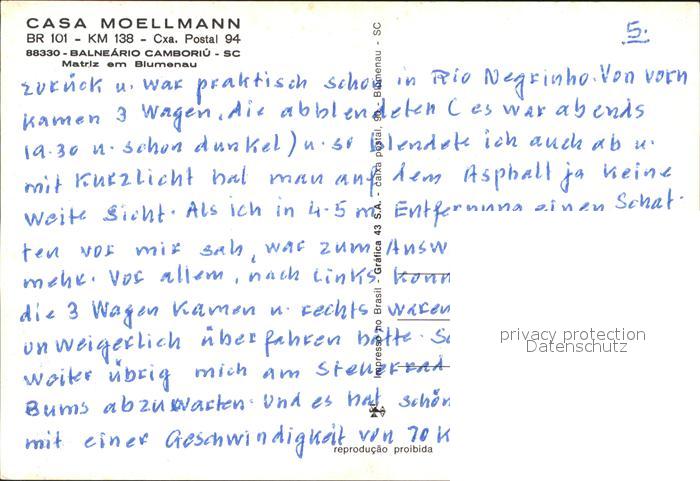 CASA MOELLMANN
BR 101 - KM 138 - Cxa. Postal 94
88330 - BALNEÁRIO CAMBORIÚ - SC
Matriz em Blumenau
5.
zurück u. war praktisch schon in Rio Negrinho. Von vorn
kamen 3 Wagen, die abblendeten (es war abends
19.30 u. schon dunkel) u. so blendete ich auch ab u.
mit Kurzlicht hat man auf dem Asphalt ja keine
weite Sicht. Als ich in 4-5 m Entfernung einen Schat-
ten vor mir sah, war zum Ausw
mehr. Vor allem, nach links konn
die 3 Wagen kamen u. rechts waren
unweigerlich überfahren hätte. So
weiter übrig mich am Steuerrad
Bums abzuwarten. Und es hat schön
mit einer Geschwindigkeit von 70 K
Impresso no Brasil - Gráfica 43 S.A. - caixa postal, - Blumenau - SC
reprodução proibida
privacy protection
Datenschutz